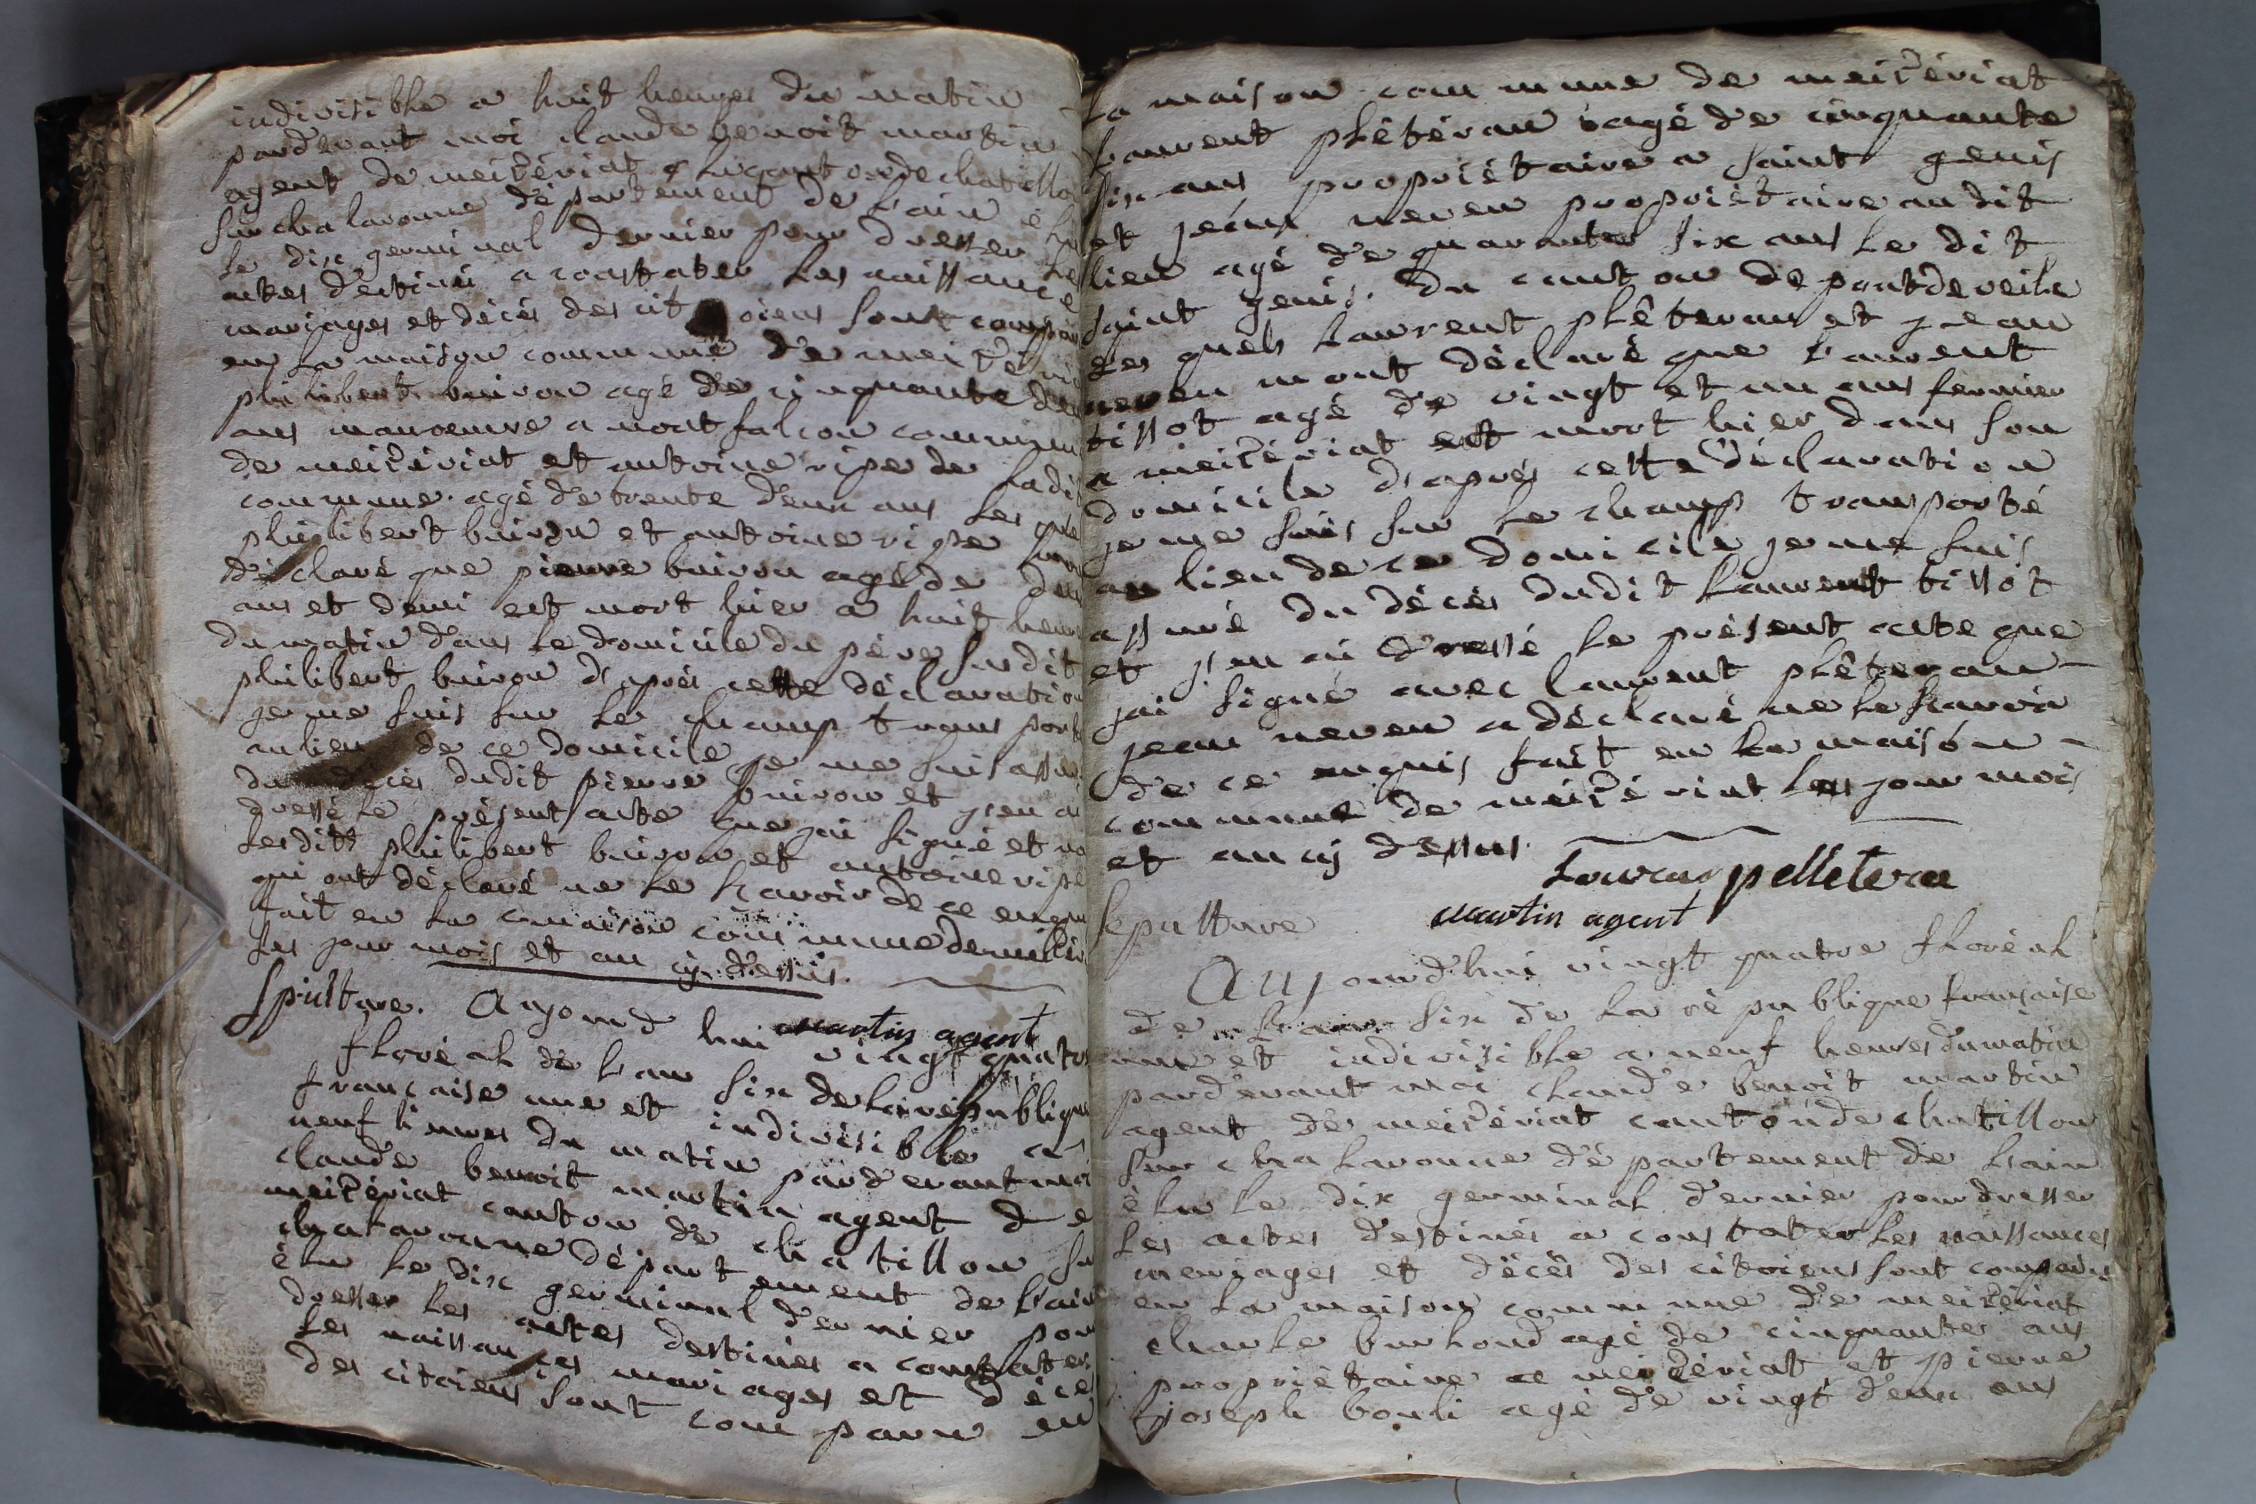 indivisible a huit heures du matin
pard'evant moi claude benoit martin
agent de meizériat canton de chatillon
sur chalaronne département de l'ain élu
le dix germinal dernier pour dresser les
actes destinés a constater les naissance
mariages et décés des citoiens sont comparu
en la maison commune de meizéria
philibert buiron agé de cinquante deu
ans manoeuvre a montfalcon commune
de meizériat et antoine ripe de ladit
commune agé de trente deux ans les quel
philibert buiron et antoine ripe
déclaré que pierre buiron agé de deux
ans et demi est mort hier a huit heur
du matin dans le domicile du père susdit
philibert buiron d'aprés cette déclaration
je me suis sur le champ trans porté
au lieu de ce domicile je me suis assur
du décés dudit pierre buiron et j'en ai
dressé le présent acte que jai signé et no
lesdits philibert buiron et antoine ripe
qui ont déclaré ne le sçavoir de ce enquis
fait en la maison commune de
les jour mois et an cy dessus.
martin agent
Spulture. Aujourd hui vingt quatre
floréal de l'an six de la république
francaise une et indivisible a
neuf heures du matin pard'evant moi
claude benoit martin agent de
meizériat canton de chatillon su
chalaronne département de l'ain
élu le dix germinal dernier pour
dresser les actes destinés a constater
les naissances mariages et décés
des citoiens sont comparu en
la maison commune de meizériat
laurent plêteran agé de cinquante
six ans propriétaire a saint genis
et jean neveu propriétaire audit
lieu agé de quarante six ans le dit
saint genis du canton de pontdeveile
les quels laurent plêteran et jean
neveu mont déclaré que laurent
tissot agé de vingt et un ans fermier
a meizériat est mort hier dans son
domicile d'aprés cette déclaration
je me suis sur le champ transporté
au lieu de ce domicile je me suis
assuré du décés dudit laurent tissot
et j'en ai dressé le présent acte que
jai signé avec laurent plêteran
jean neveu a déclaré ne le
de ce enquis fait en la maison
commune de meizériat les jour mois
et an cy dessus.
pelletera
martin agent
sepulture
Aujourd'hui vingt quatre floréal
de l'an six de la république française
une et indivisible a neuf heures du matin
pard'evant moi claude benoit martin
agent de meizériat canton de chatillon
sur chalaronne département de l'ain
élu le dix germinal dernier pour dresser
les actes destinés a constater les naissances
mariages et décés des citoiens sont comparu
en la maison commune de meizériat
charle burhond agé de cinquante ans
propriétaire a meizériat et pierre
joseph bouli agé de vingt deux ans